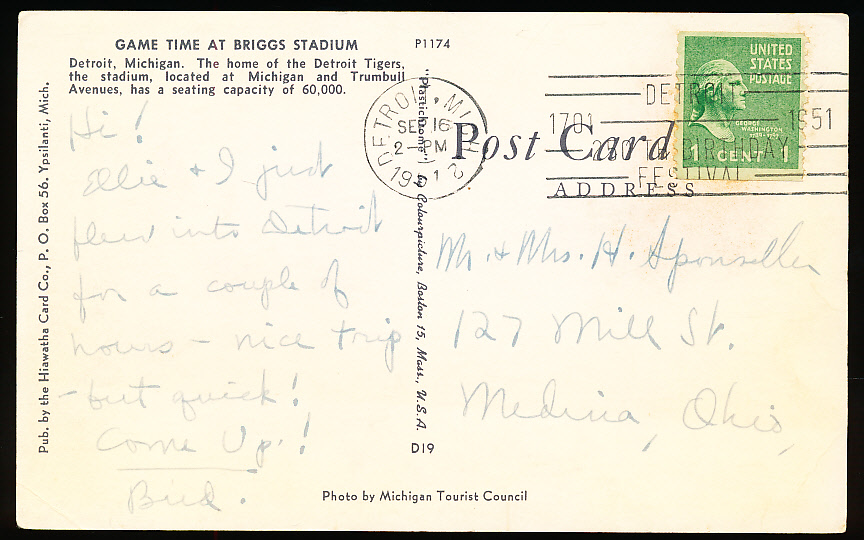 GAME TIME AT BRIGGS STADIUM
Detroit, Michigan. The home of the Detroit Tigers,
the stadium, located at Michigan and Trumbull
Avenues, has a seating capacity of 60,000.
P1174
Hi!
Ellie + I just
flew into Detroit
for a couple of
hours - nice trip
- but quick!
Come Up!
Pub. by the Hiawatha Card Co., P. O. Box 56, Ypsilanti, Mich.
"Plastichrome" by Colourpicture, Boston 15, Mass., U.S.A.
D19
Photo by Michigan Tourist Council
DETROIT, MICH
SEP 16
2 - PM
1951
Post Card
ADDRESS
UNITED
STATES
POSTAGE
GEORGE
WASHINGTON
1 CENT 1
DETROIT
1701 1951
BIRTHDAY
FESTIVAL
Mr. + Mrs. H. Sponseller
127 Mill St.
Medina, Ohio,